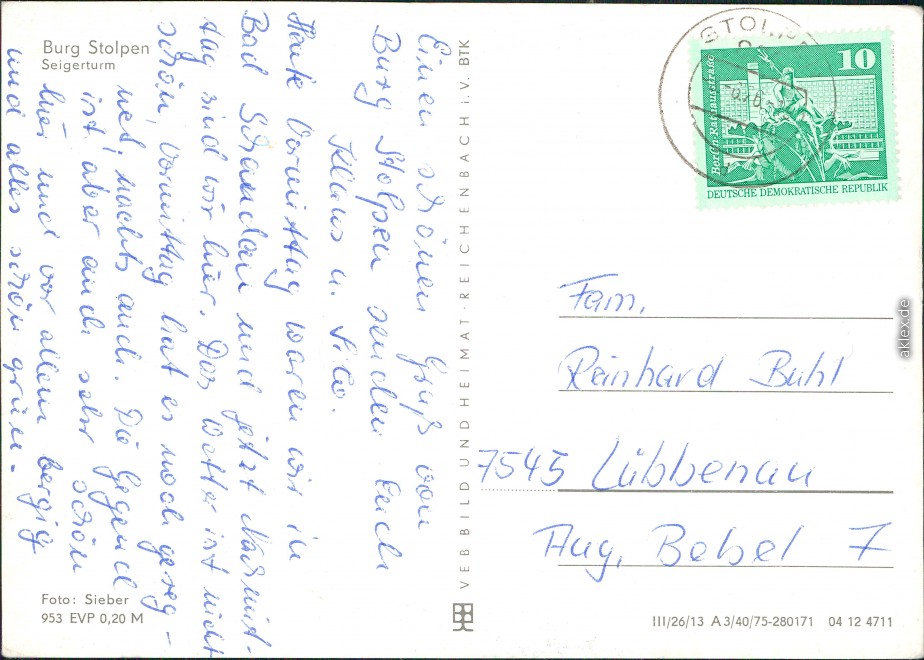 Burg Stolpen
Seigerturm
Einen schönen Gruß von
Burg Stolpen senden Euch
Klaus u.
Heute Vormittag waren wir in
Bad Schandau und jetzt Nachmit-
tag sind wir hier. Das Wetter ist nicht
schön, Vormittag hat es noch gereg-
net, nachts auch. Die Gegend
ist aber auch sehr schön
hier und vor allem bergig
und alles schön grün.
Foto: Sieber
953 EVP 0,20 M
VEB BILD UND HEIMAT · REICHENBACH i. V. BTK
STOLPEN
10
Berlin, Rathausstraße
DEUTSCHE DEMOKRATISCHE REPUBLIK
Fam.
Reinhard Buhl
7545 Lübbenau
Aug. Bebel 7
III/26/13 A 3/40/75-280171 04 12 4711
aklex.de